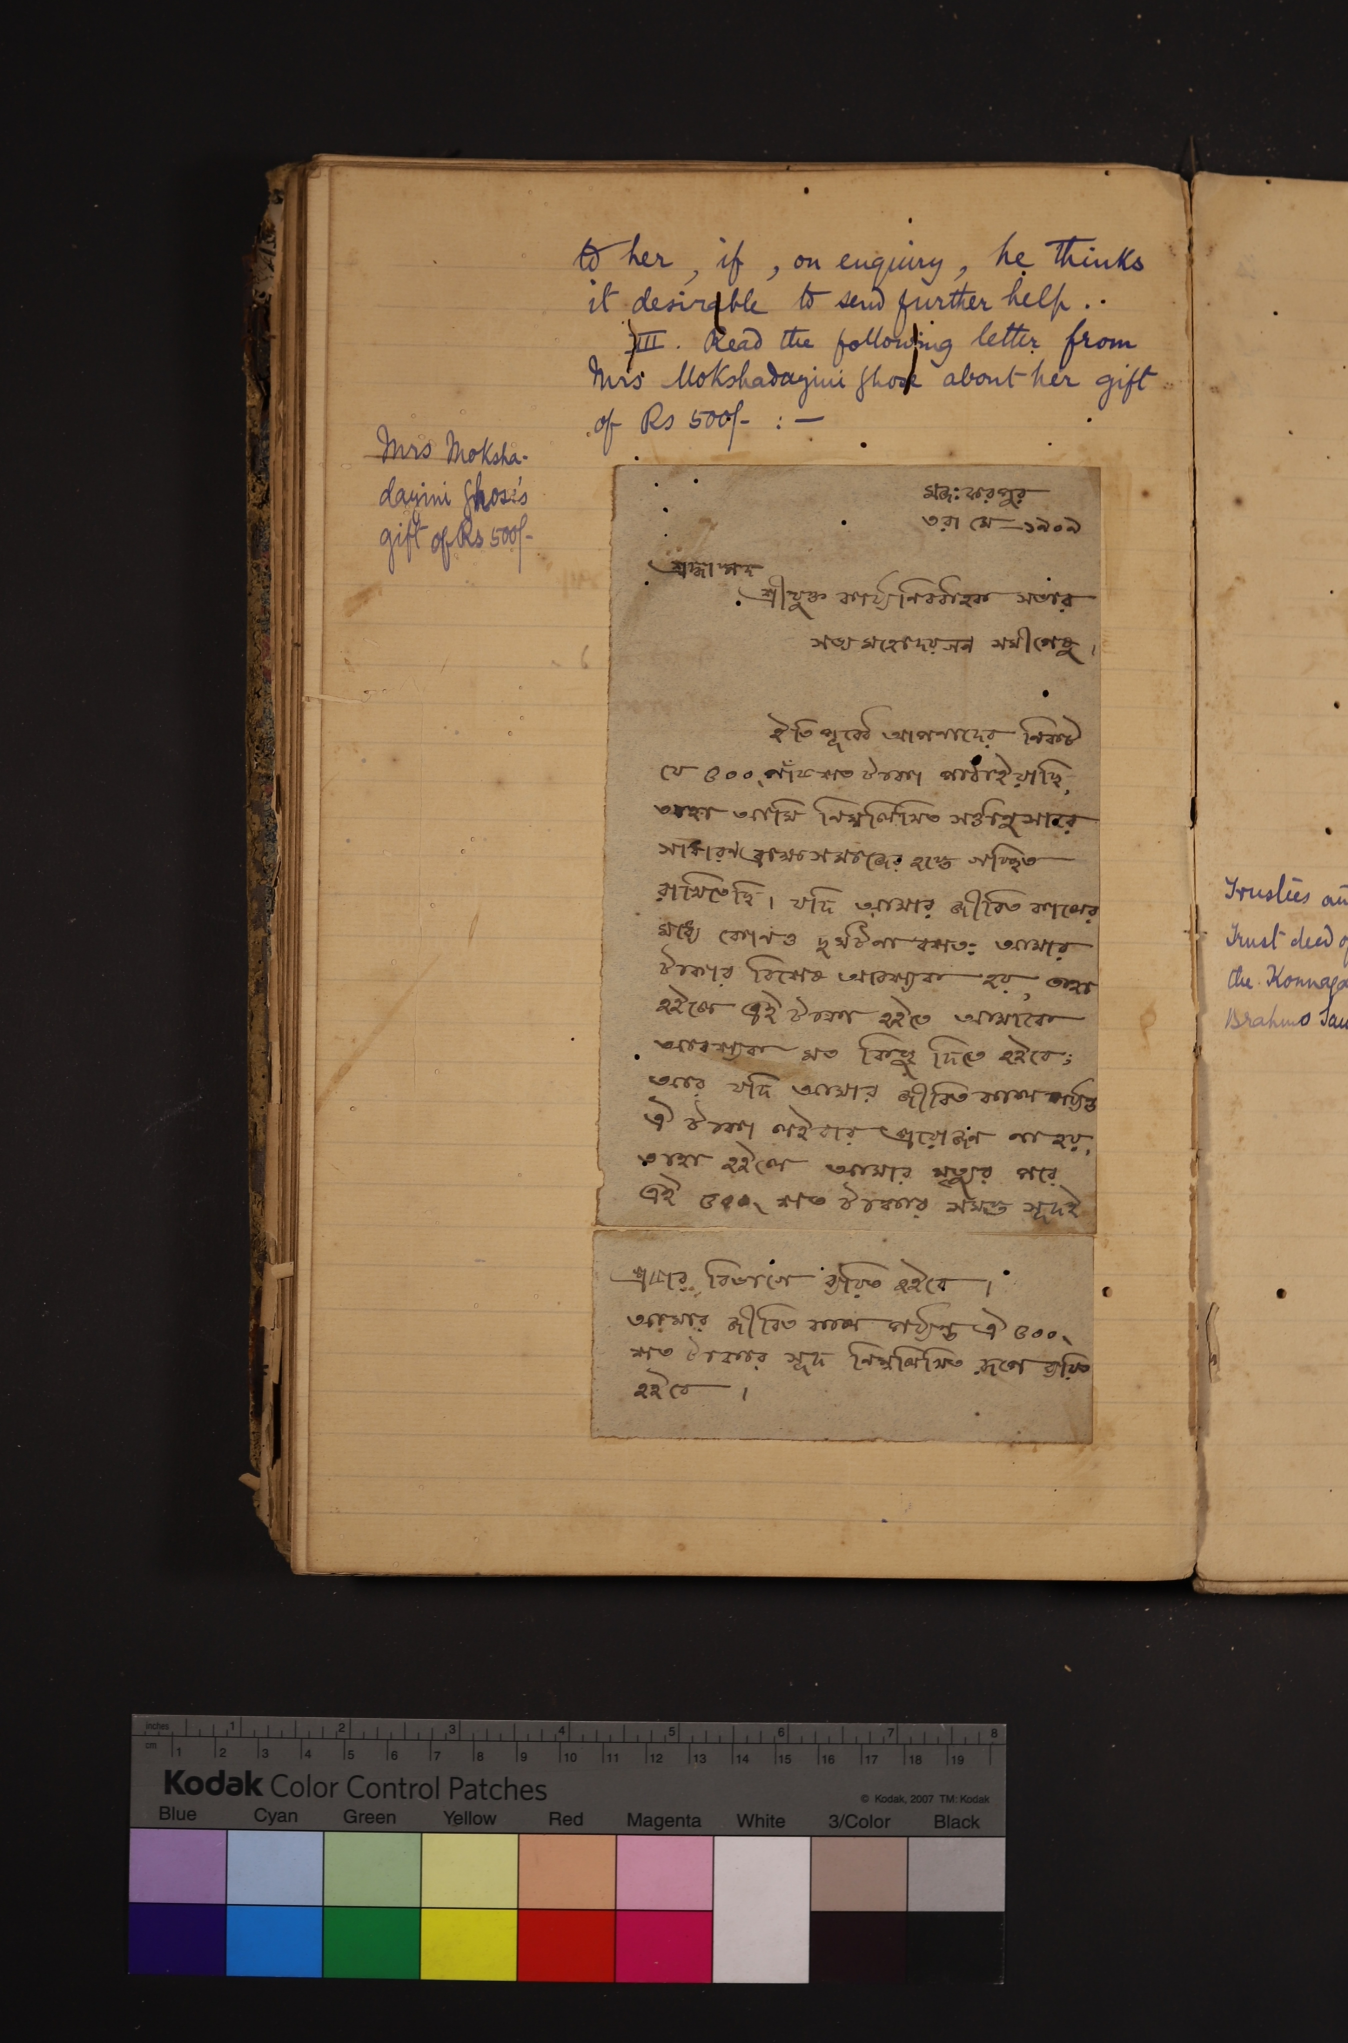 to her, if, on enquiry, he thinks
it desirable to send further help..
III. Read the following letter from
Mrs Mokshadayini Ghose about her gift
of Rs 500/- :—
Mrs Moksha-
dayini Ghose's
gift of Rs 500/-
মজঃফরপুর
৩রা মে—১৯০৯
শ্রদ্ধাস্পদ
শ্রীযুক্ত কার্য্যনির্ব্বাহক সভার
সভ্য মহোদয়গন সমীপেষু।
ইতিপূর্ব্বে আপনাদের নিকট
যে ৫০০৲ পাঁচশত টাকা পাঠাইয়াছি,
তাহা আমি নিম্নলিখিত সর্ত্তানুসারে
সাধারণ ব্রাহ্মসমাজের হস্তে গচ্ছিত
রাখিতেছি। যদি আমার জীবিত কালের
মধ্যে কোনও দুর্ঘটনা বশতঃ আমার
টাকার বিশেষ আবশ্যক হয়, তাহা
হইলে এই টাকা হইতে আমাকে
আবশ্যক মত কিছু দিতে হইবে;
আর যদি আমার জীবিত কাল পর্য্যন্ত
ঐ টাকা লইবার প্রয়োজন না হয়,
তাহা হইলে আমার মৃত্যুর পরে
এই ৫০০৲ শত টাকার সমস্ত সূদই
প্রচার বিভাগে ব্যয়িত হইবে।
আমার জীবিত কাল পর্য্যন্ত ঐ ৫০০৲
শত টাকার সূদ নিম্নলিখিত রূপে ব্যয়িত
হইবে।
Trustees an
Trust deed of
the Konnaga
Brahmo Sam
inches 1 2 3 4 5 6 7 8
cm 1 2 3 4 5 6 7 8 9 10 11 12 13 14 15 16 17 18 19
Kodak Color Control Patches
© Kodak, 2007 TM: Kodak
Blue Cyan Green Yellow Red Magenta White 3/Color Black